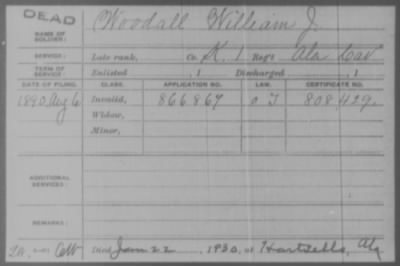 DEAD
NAME OF SOLDIER: Woodall William J.
SERVICE: Late rank, Co. K, 1 Reg't Ala Cav
TERM OF SERVICE: Enlisted , 1 Discharged , 1
DATE OF FILING. CLASS. APPLICATION NO. LAW. CERTIFICATE NO.
1890 Aug 6 Invalid, 866867 808,429.
Widow,
Minor,
ADDITIONAL SERVICES:
REMARKS:
Died Jan 22 , 1930, at Hartsells, Ala